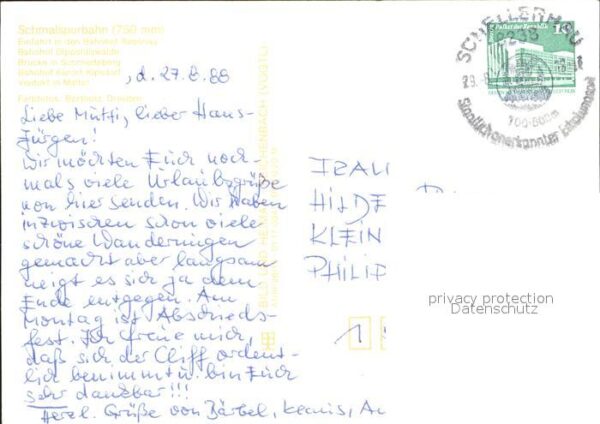 Schmalspurbahn (750 mm)
Einfahrt in den Bahnhof Rabenau
Bahnhof Dippoldiswalde
Brücke in Schmiedeberg
Bahnhof Kurort Kipsdorf
Viadukt in Malter
, d. 27.8.88
Liebe Mutti, lieber Hans-
Jürgen!
Wir möchten Euch noch-
mals viele Urlaubsgrüße
von hier senden. Wir haben
inzwischen schon viele
schöne Wanderungen
gemacht aber langsam
neigt es sich ja dem
Ende entgegen. Am
Montag ist Abschieds-
fest. Ich freue mich,
daß sich der Cliff ordent-
lich benimmt u. bin Euch
sehr dankbar!!!
Herzl. Grüße von Bärbel,
BILD UND HEIMAT REICHENBACH (VOGTL)
SCHELLERHAU
8238
29.8
700-800m
Staatlich anerkannter Erholungsort
Palast der Republik
10
HILDE
KLEIN
PHILIP
1
privacy protection
Datenschutz